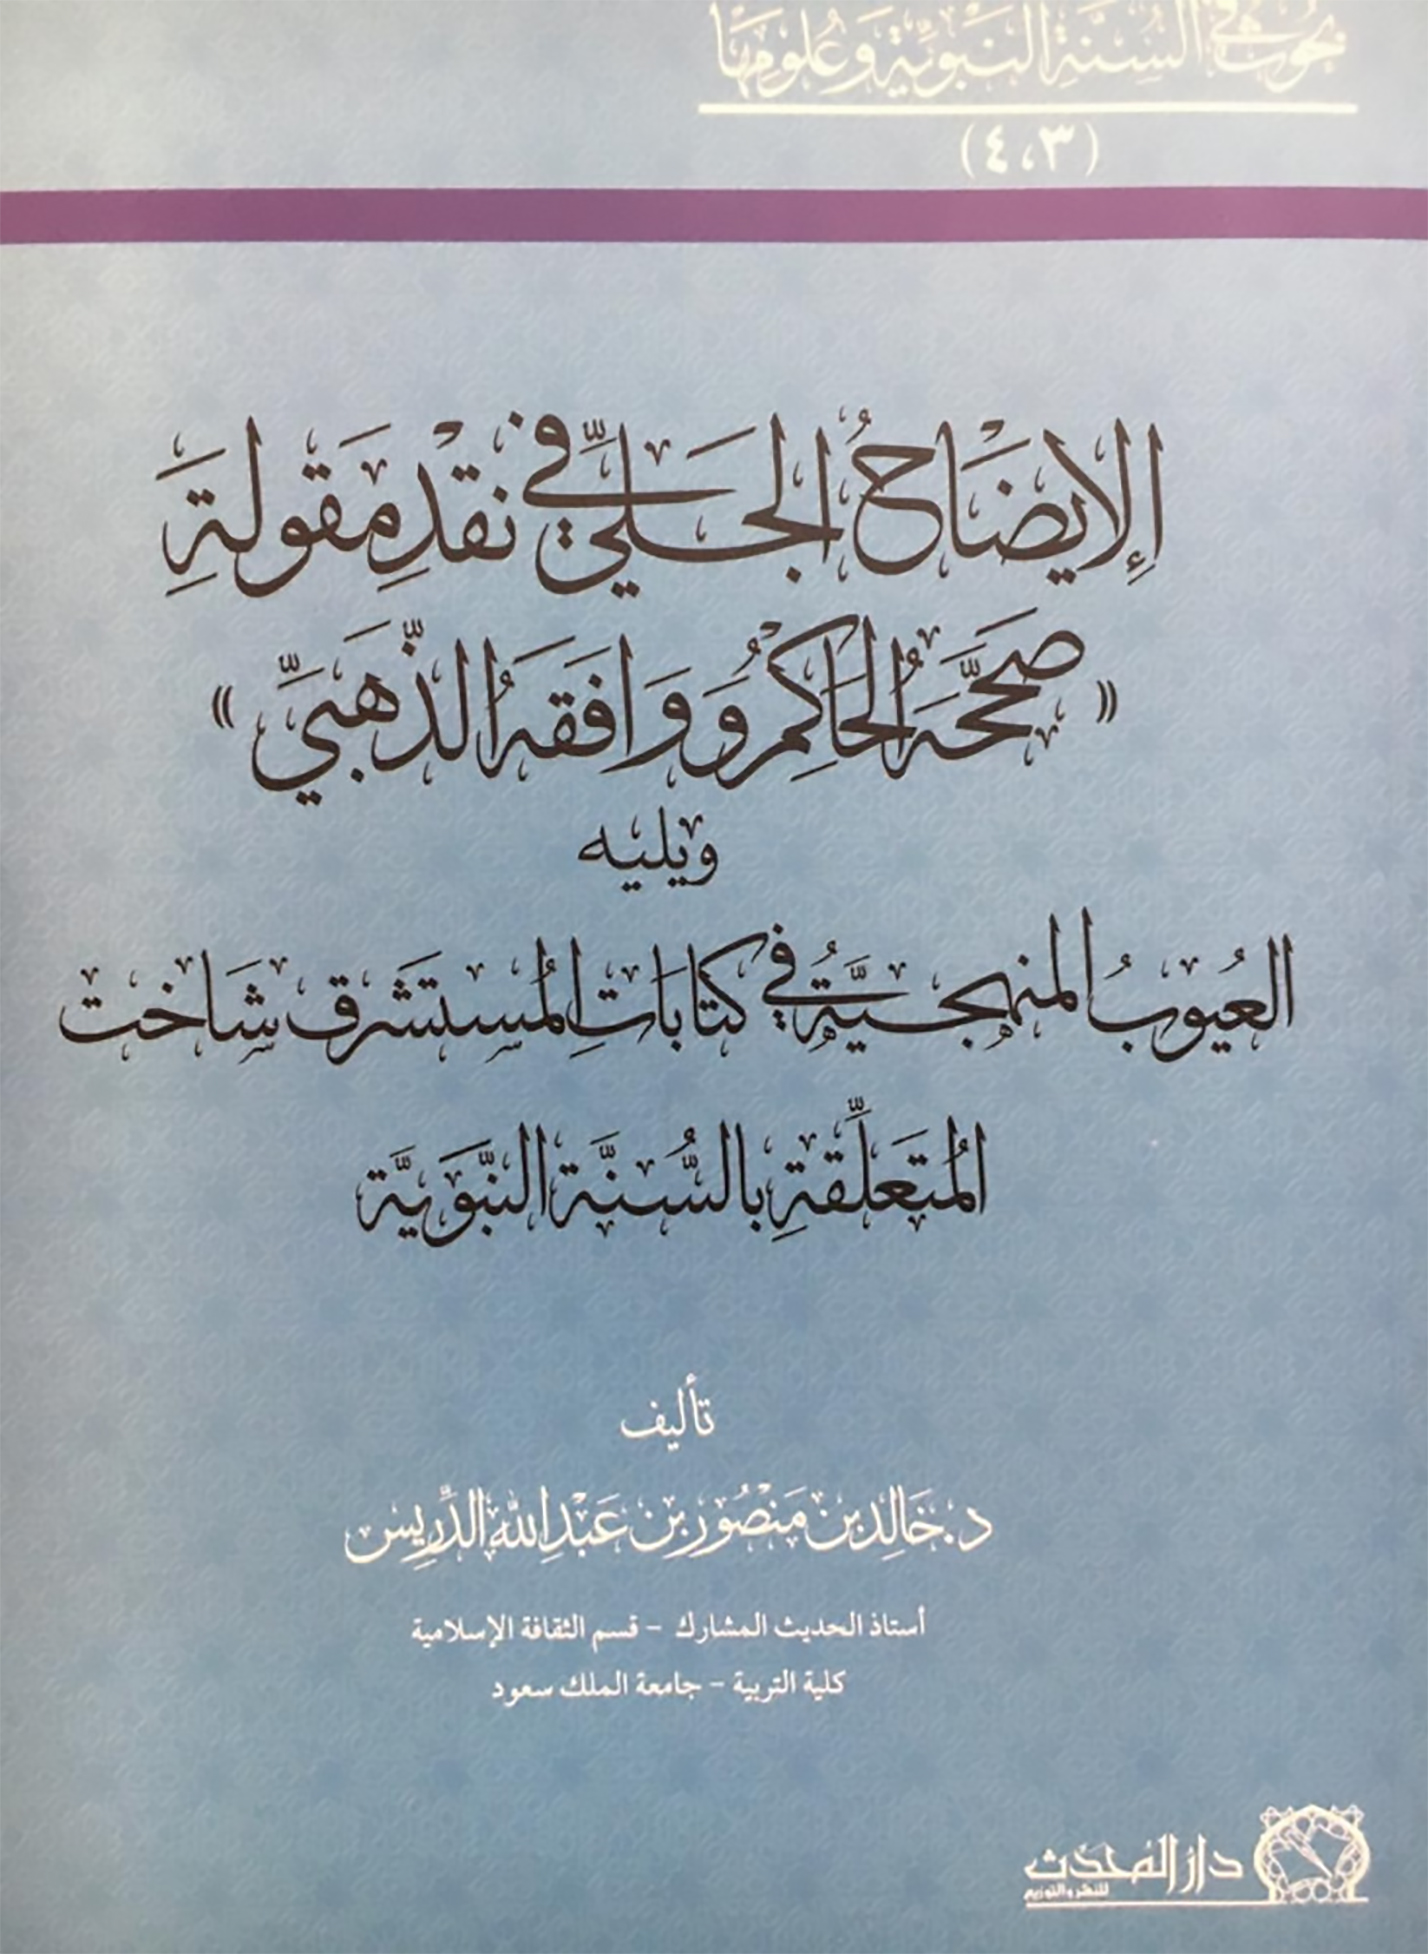 بحوث في السنة النبوية وعلومها
(٣، ٤)
الإيضاحُ الجَليّ في نقدِ مَقولَةِ
« صحَّحَهُ الحَاكِمُ وَوَافَقَهُ الذّهَبيّ »
ويليه
العُيوبُ المنهجيَّةُ في كتابَاتِ المُستَشرق شَاخت
المُتَعلِّقةِ بالسُّنَّة النَّبَويَّة
تأليف
د. خَالِد بن مَنصُور بن عَبْد الله الدِّريس
أستاذ الحديث المشارك - قسم الثقافة الإسلامية
كلية التربية - جامعة الملك سعود
دار المحدث
للنشر والتوزيع